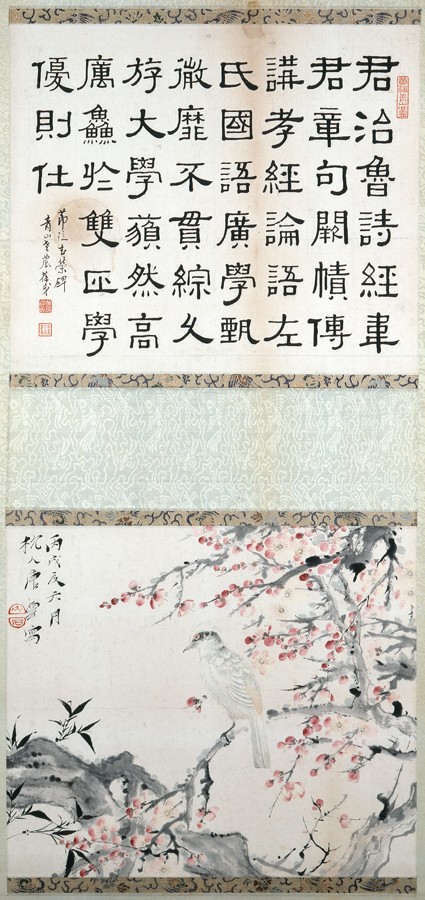 君治魯詩經韋
君章句闕幘傳
講孝經論語左
氏國語廣學甄
微靡不貫綜久
斿大學藐然高
厲鱻於雙匹學
優則仕
節臨武榮碑
青山老農葆戉
丙戌夏六月
杭人唐雲寫